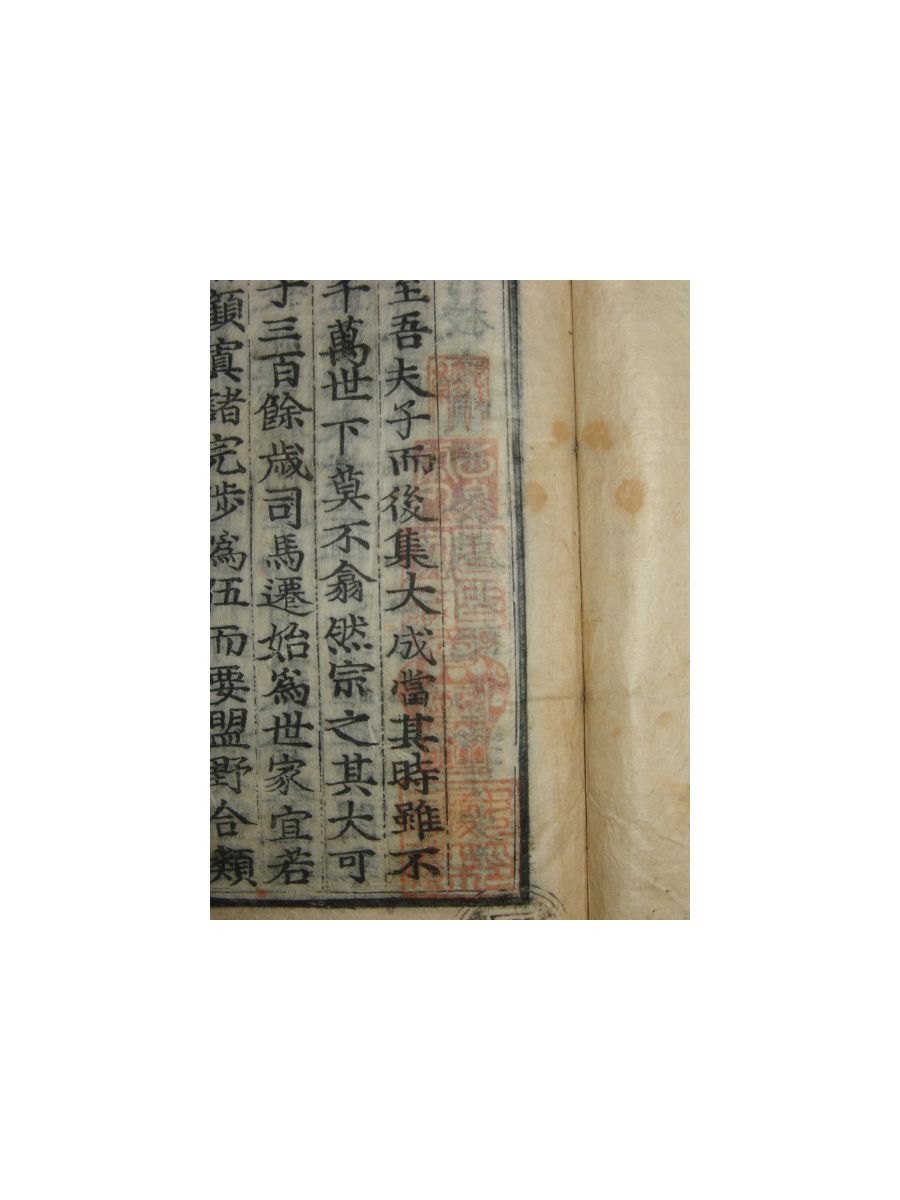 至吾夫子而後集大成當其時雖不
千萬世下莫不翕然宗之其大可
于三百餘歲司馬遷始爲世家宜若
顧寘諸完涉爲伍而要盟野合類